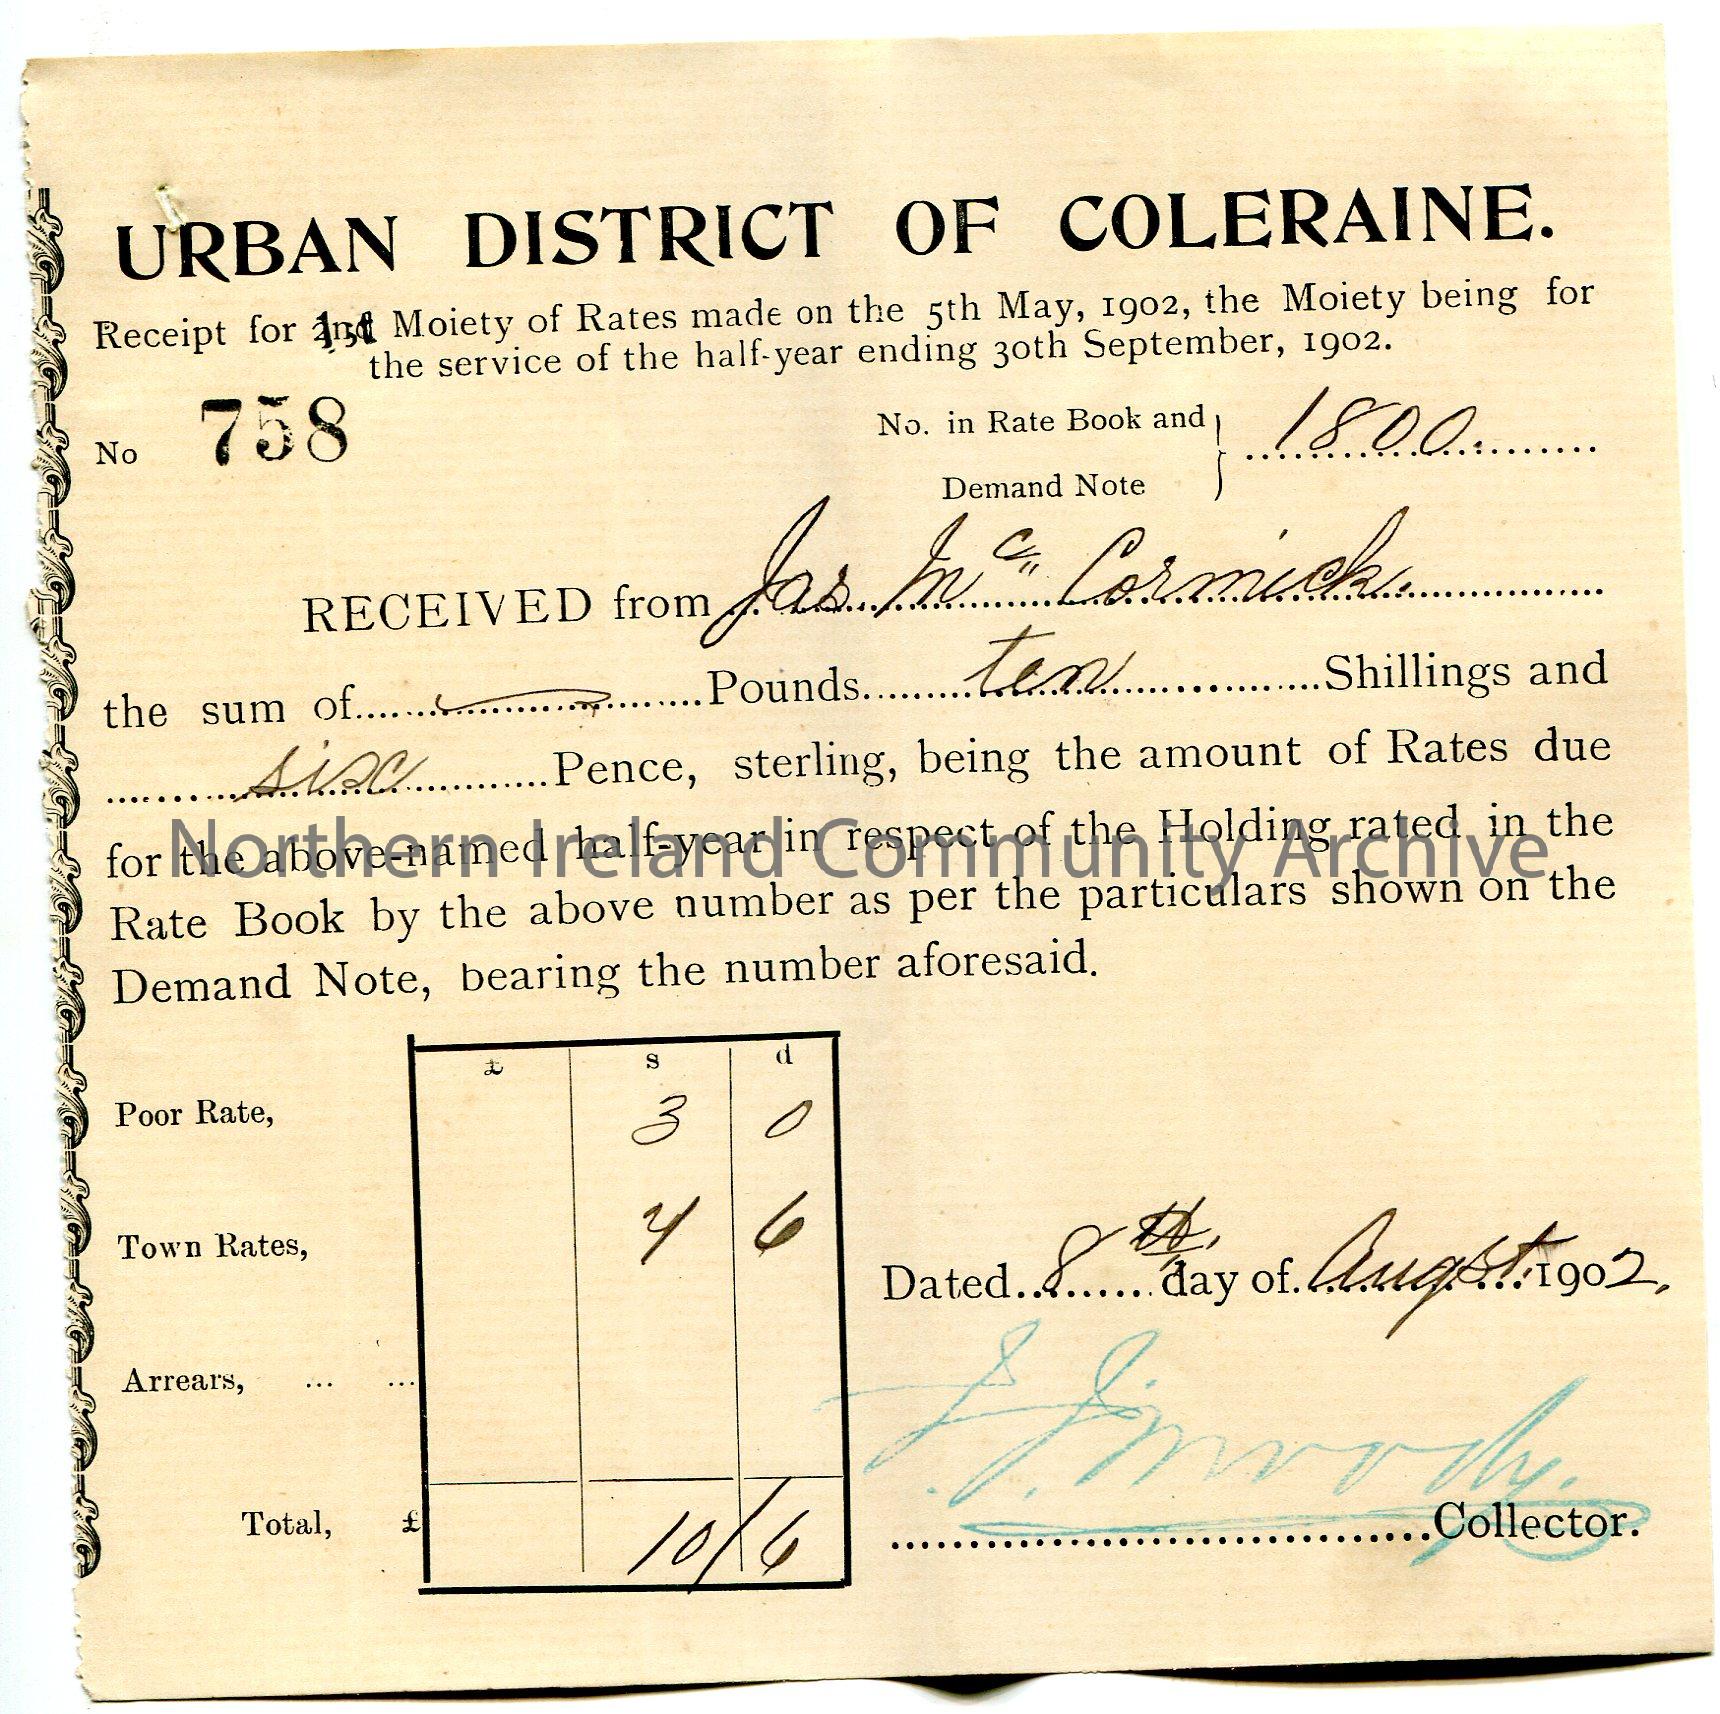 URBAN DISTRICT OF COLERAINE.
Receipt for 1st Moiety of Rates made on the 5th May, 1902, the Moiety being for
the service of the half-year ending 30th September, 1902.
No 758
No. in Rate Book and
Demand Note } 1800
RECEIVED from Jas Mc Cormick
the sum of.......Pounds ten Shillings and
six Pence, sterling, being the amount of Rates due
for the above-named half-year in respect of the Holding rated in the
Northern Ireland Community Archive
Rate Book by the above number as per the particulars shown on the
Demand Note, bearing the number aforesaid.
£ s d
Poor Rate, 3 0
Town Rates, 4 6
Arrears, ... ...
Total, £ 10/6
Dated 8th day of Augst. 1902.
Collector.